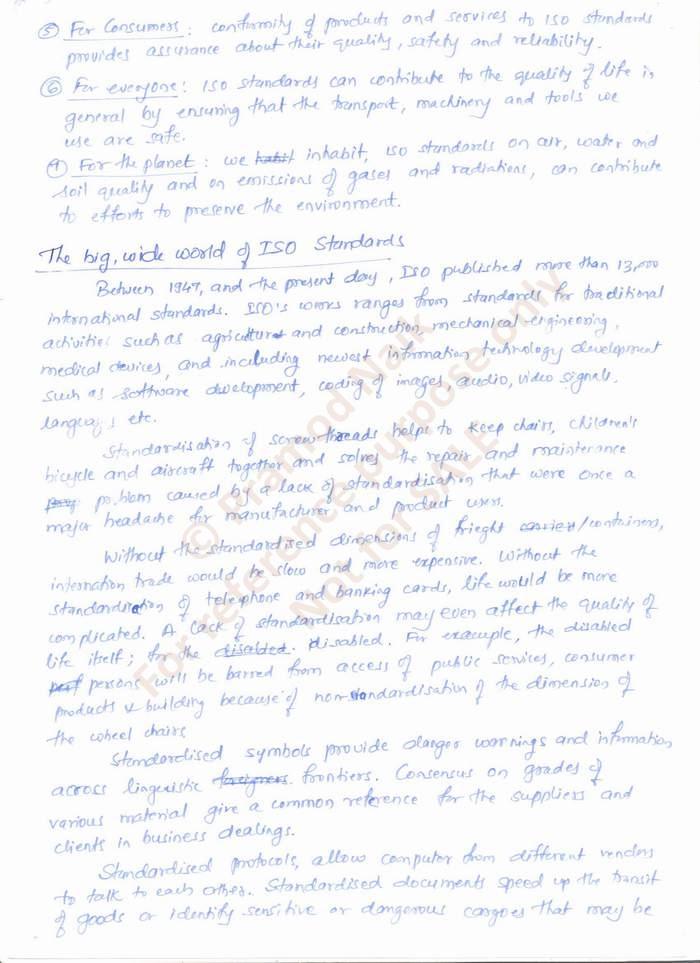 ⑤ For Consumers : conformity of products and services to ISO standards
provides assurance about their quality, safety and reliability.
⑥ For everyone : ISO standards can contribute to the quality of life in
general by ensuring that the transport, machinery and tools we
use are safe.
For the planet : we habit inhabit, ISO standards on air, water and
soil quality and on emissions of gases and radiations, can contribute
to efforts to preserve the environment.
The big, wide world of ISO Standards
Between 1947, and the present day, ISO published more than 13,000
international standards. ISO's works ranges from standards for traditional
activities such as agriculture and construction, mechanical engineering,
medical devices, and including newest information technology development
such as software development, coding of images, audio, video signals,
languages etc.
Standardisation of screw threads helps to keep chairs, children's
bicycle and aircraft together and solves the repair and maintenance
problem caused by a lack of standardisation that were once a
major headache for manufacturer and product users.
Without the standardised dimensions of frieght carrier/containers,
internation trade would be slow and more expensive. Without the
standardisation of telephone and banking cards, life would be more
complicated. A lack of standardisation may even affect the quality of
life itself; for the disabled. Disabled. For example, the disabled
persons will be barred from access of public services, consumer
products & building because of non-standardisation of the dimension of
the wheel chairs
Standardised symbols provide danger warnings and information
across linguistic foreigners frontiers. Consensus on grades of
various material give a common reference for the suppliers and
clients in business dealings.
Standardised protocols, allow computer from different vendors
to talk to each other. Standardised documents speed up the transit
of goods or identify sensitive or dangerous cargoes that may be
© Pramod Naik
For reference purpose only
Not for SALE